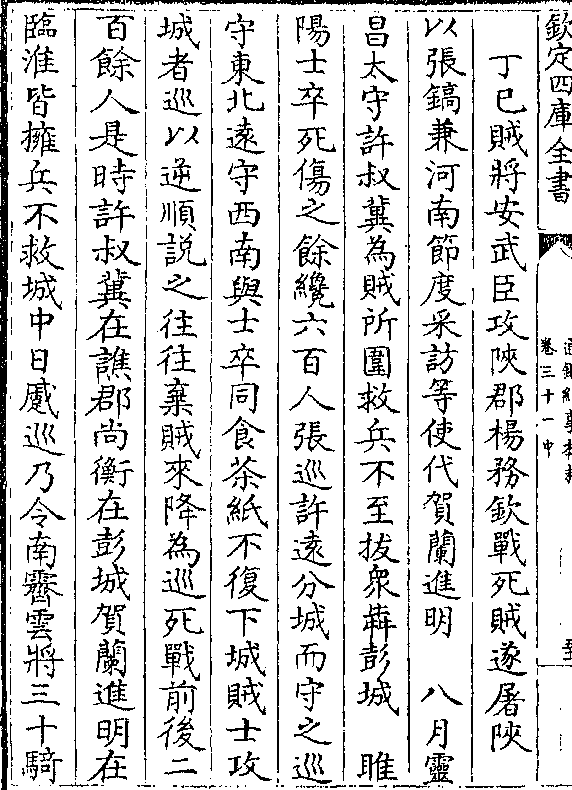 欽定四庫全書
通鑑紀事本末
卷三十一中
丁巳賊將安武臣攻陜郡楊務欽戰死賊遂屠陜
以張鎬兼河南節度采訪等使代賀蘭進明　八月靈
昌太守許叔冀為賊所圍救兵不至拔衆犇彭城　睢
陽士卒死傷之餘纔六百人張巡許遠分城而守之巡
守東北遠守西南與士卒同食茶紙不復下城賊士攻
城者巡以逆順說之往往棄賊來降為巡死戰前後二
百餘人是時許叔冀在譙郡尚衡在彭城賀蘭進明在
臨淮皆擁兵不救城中日蹙巡乃令南霽雲將三十騎